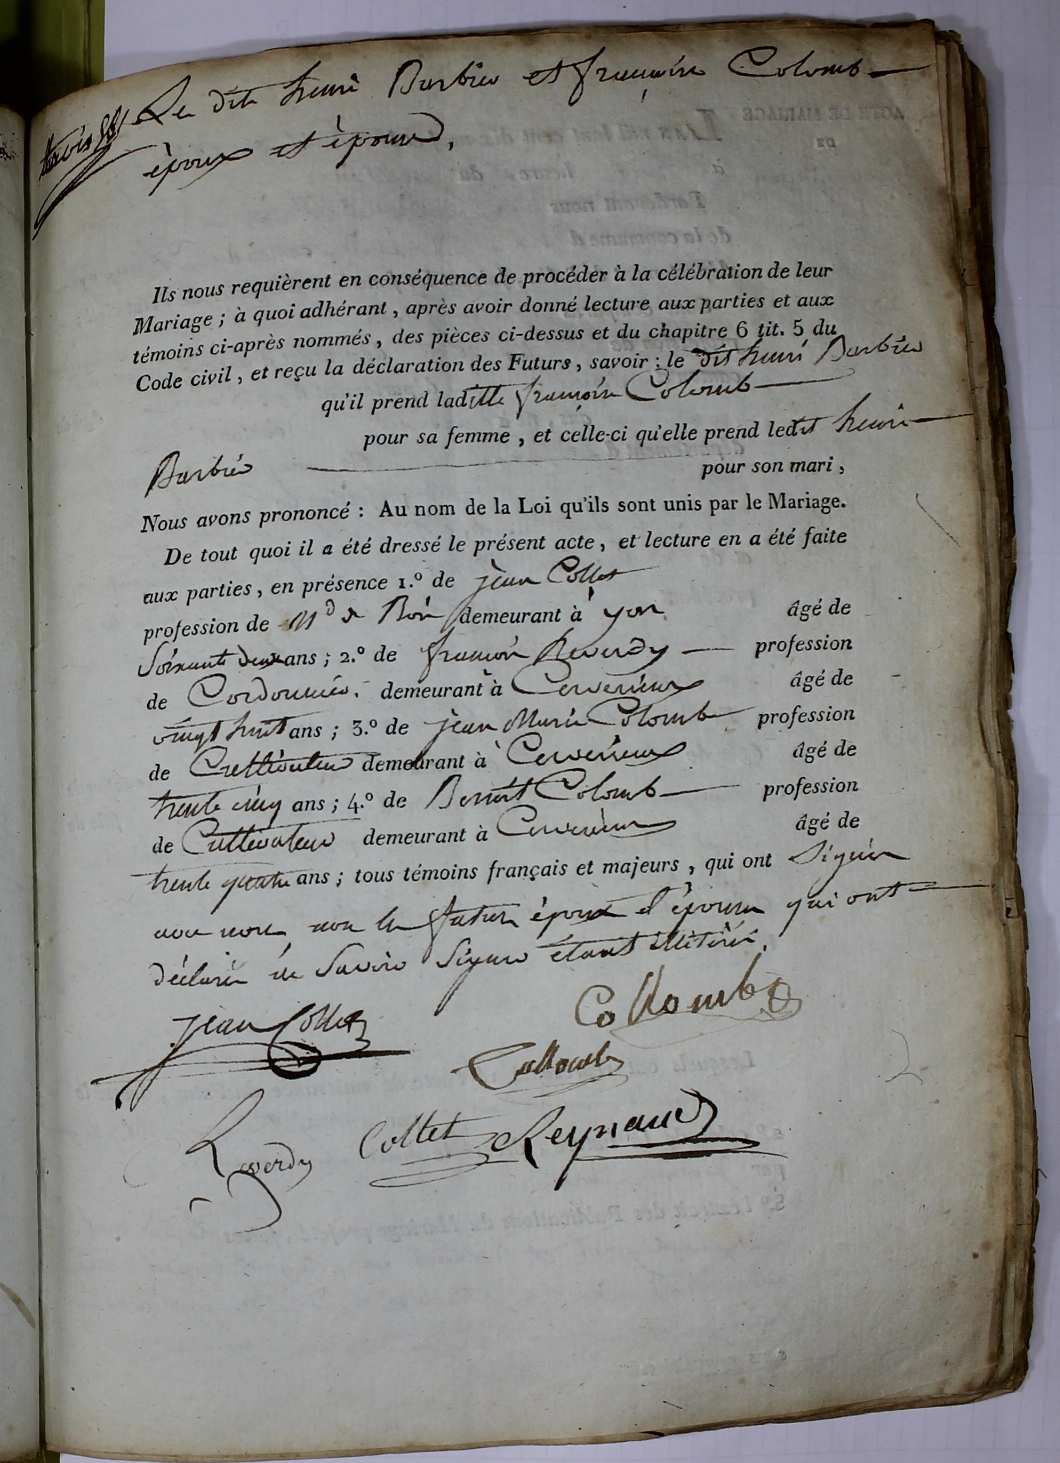 Le dit henri Barbier et françoise Colomb
époux et épouse,
Ils nous requièrent en conséquence de procéder à la célébration de leur
Mariage ; à quoi adhérant, après avoir donné lecture aux parties et aux
témoins ci-après nommés, des pièces ci-dessus et du chapitre 6 tit. 5 du
Code civil, et reçu la déclaration des Futurs, savoir : le dit henri Barbier
qu'il prend laditte françoise Colomb
pour sa femme, et celle-ci qu'elle prend ledit henri
Barbier pour son mari,
Nous avons prononcé : Au nom de la Loi qu'ils sont unis par le Mariage.
De tout quoi il a été dressé le présent acte, et lecture en a été faite
aux parties, en présence 1.º de jean Collet
profession de Md de demeurant à yon âgé de
Soixante deux ans ; 2.º de françois Reverdy profession
de Cordonnier demeurant à Cerverieux âgé de
vingt huit ans ; 3.º de jean Marie Colomb profession
de Cultivateur demeurant à Cerverieux âgé de
trente cinq ans ; 4.º de Benoît Colomb profession
de Cultivateur demeurant à Cerverieux âgé de
trente quatre ans ; tous témoins français et majeurs, qui ont Signés
avec nous non les futur époux et épouse qui ont
déclaré ne Savoir Signer étant illitérés.
jean Collet
Collomb
Collomb
Reverdy Collet Reynaud